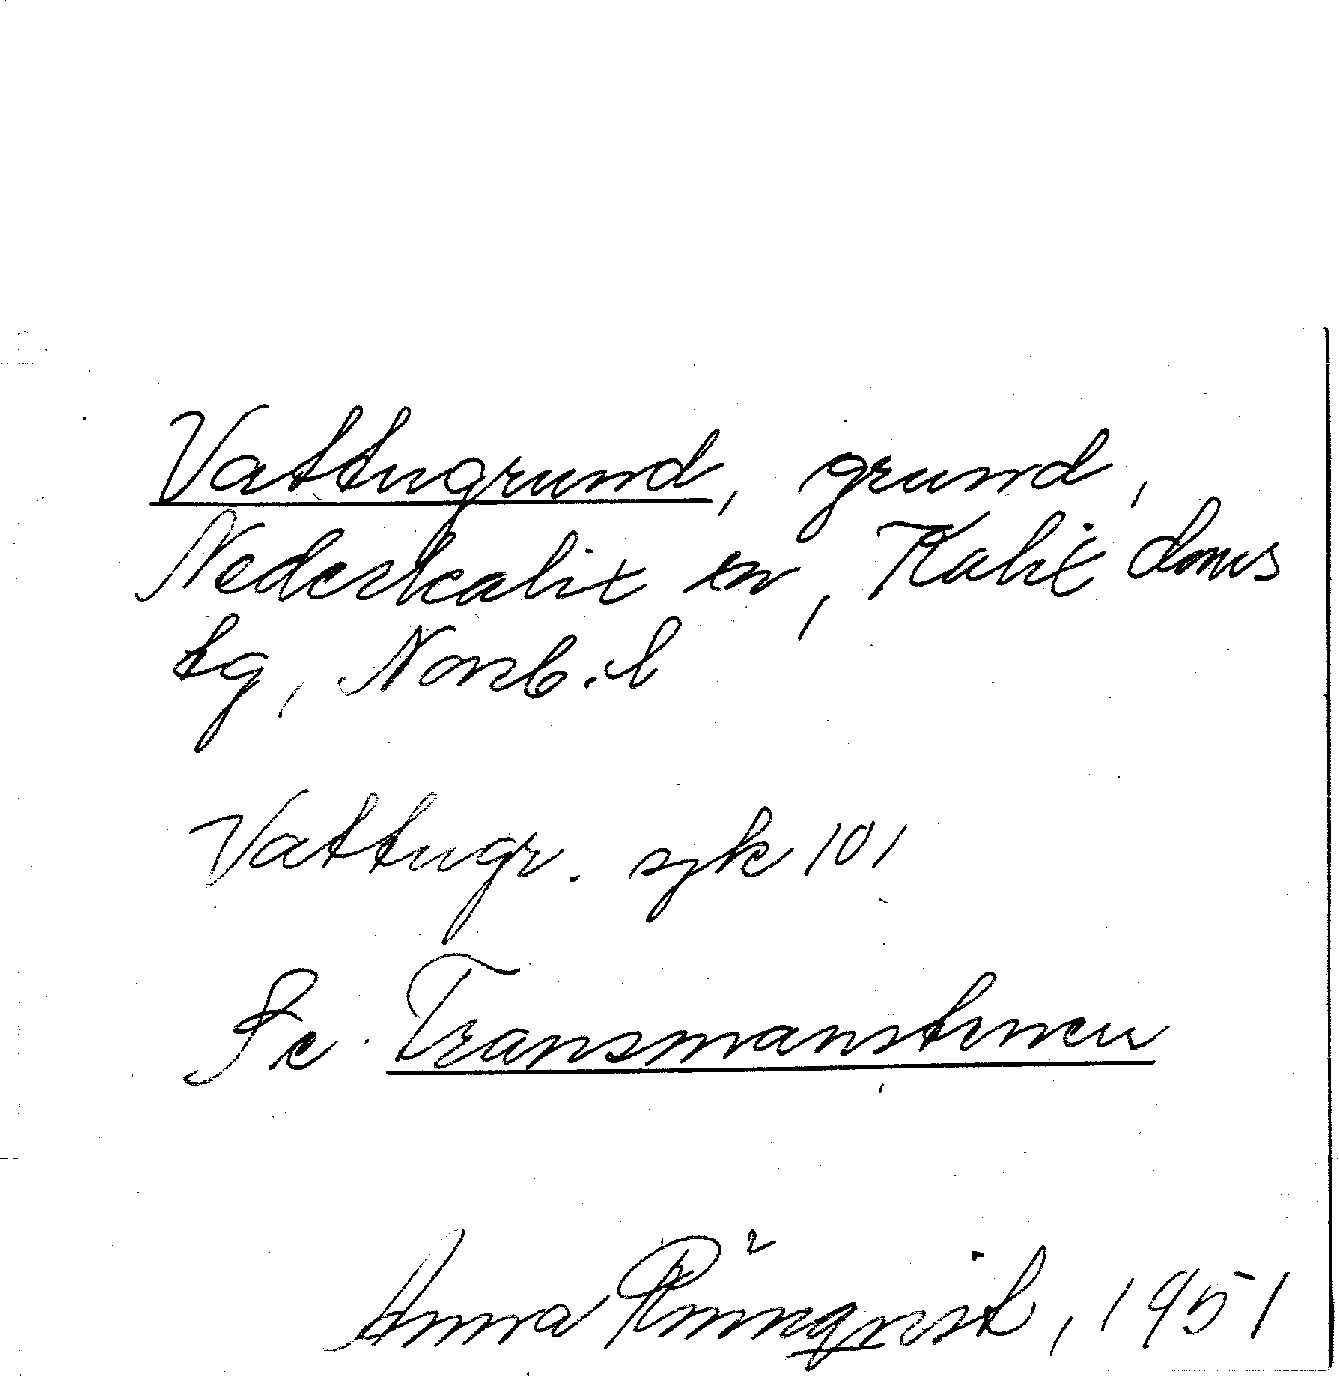 Vattugrund, grund,
Nederkalix sn, Kalix doms
tg, Norrb. l
Vattugr. sjk 101
Se Transmanstenen
Anna Rönnqvist, 1951